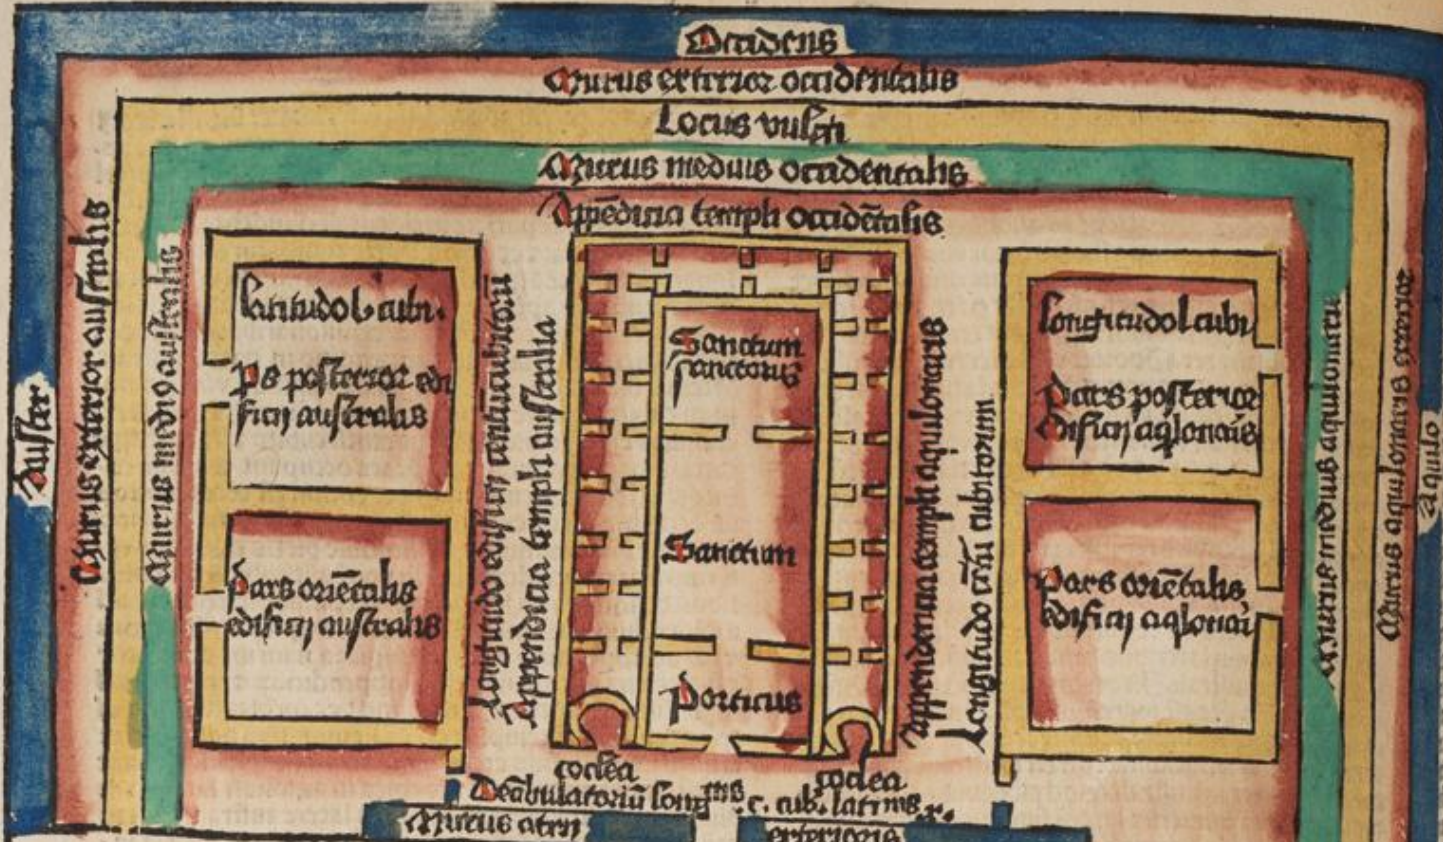 Occidens
Murus exterior occidentalis
Locus vulgi
Murus medius occidentalis
Appēdicia templi occidētalis
Auster
Murus exterior australis
Murus medi9 australis
latitudo l. cubi.
ps posterior edi
ficij australis
pars oriētalis
edificij australis
Longitudo edificij centū cubitorū
Appendicia templi australia
Sanctum
sanctorus
Sanctum
Porticus
coclea
coclea
Appendencia templi aquilonaris
Longitudo centū cubitorum
longitudo l cubi
Pars posterior
edificij aqlonaris
Pars oriētalis
edificij aqlonaris
Murus medius aquilonaris
Murus aquilonaris
Aquilo
Deābulatoriū c. cub. x.
Murus atrij exterioris